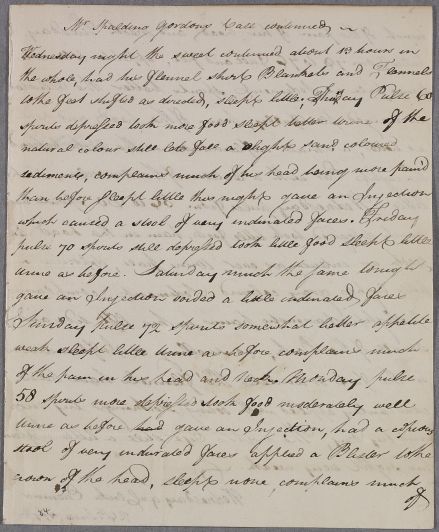 Mr Spalding Gordons Case continued
Wednesday night the sweat continued about 12 hours in
the whole, had his flannel shirt Blankets and Flannels
to the feet shifted as directed, slept little. Pulse 60
spirits depressed took more food slept better urine of the
natural colour still lets fall a slight sand coloured
sediments, complains much of his head being more pain'd
than before sleept little this night gave an Injection
which caused a stool of very indurated faces. Friday
pulse 70 spirits still depressed took little food sleept little
urine as before. Saturday much the same tonight
gave an Injection voided a little indurated faces
Sunday Pulse 72 spirits somewhat better appetite
weak sleept little urine as before complains much
of the pain in his head and neck. Monday pulse
58 spirits more depressed took food moderately well
urine as before had gave an Injection, had a copious
stool of very indurated faces applied a Blister to the
crown of the head, sleept none, complains much
of